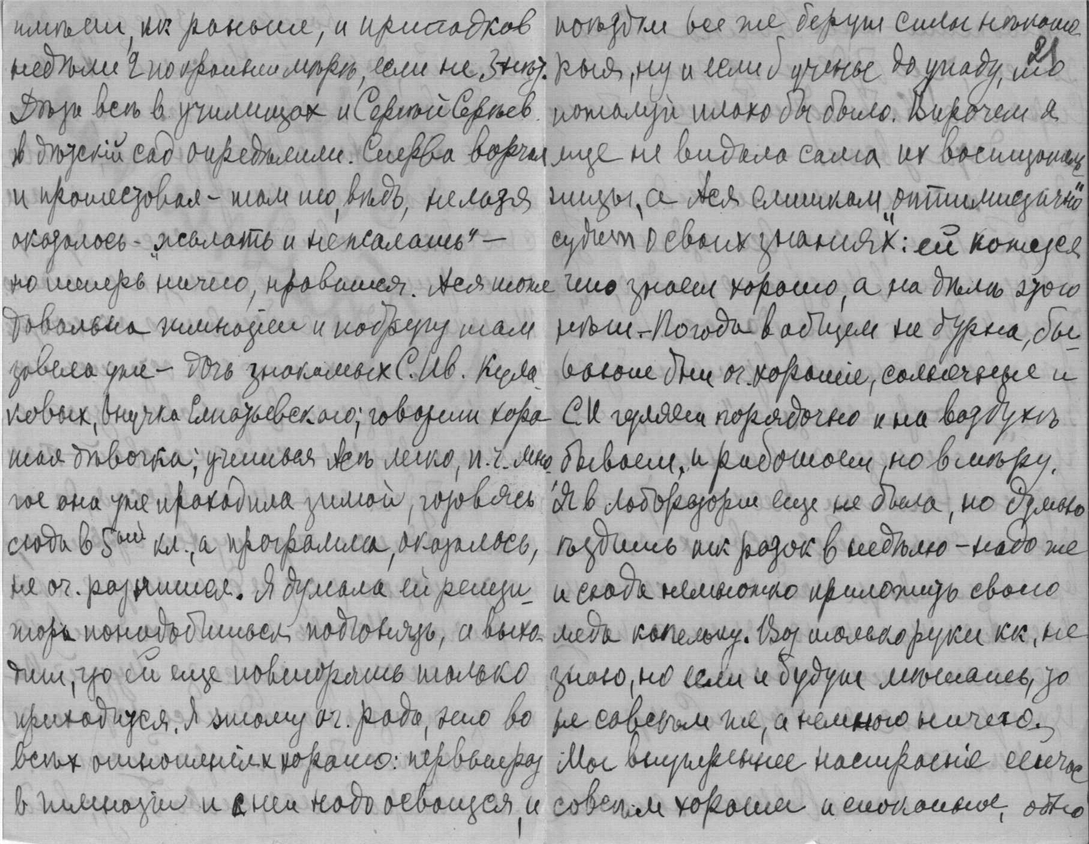 имѣли, кк раньше, и припадков
недѣли 2 по крайней мѣрѣ, если не 3 нѣт.
Дѣти всѣ в училищах и Сергѣй Сергѣев.
в дѣтскій сад опредѣлили. Сперва ворчал
и протестовал – там то, вѣдь, нельзя
оказалось – "желать и не желать" –
но теперь ничего, нравится. Ася тоже
довольна гимназіей и подругу там
завела уже – дочь знакомых С. Ив. Кула
ковых, внучка Елпатьевского; говорит хоро
шая дѣвочка; учиться Асѣ легко, п. ч. мно
гое она уже проходила зимой, готовясь
сюда в 5ый кл., а программа, оказалось,
не оч. разнится. Я думала ей репети-
тора понадобиться подгонять, а выхо
дит, что ей еще повторять только
приходится. Я этому оч. рада, что во
всѣх отношеніях хорошо: первый раз
в гимназіи и с ней надо освоиться, и
поѣзди все же берут силы нѣкото
21
рыя, ну и если б ученье до упаду, то
пожалуй плохо бы было. Впрочем я
еще не видала сама их воспитатель
ницы, а Ася слишком "оптимистично"
судит о своих "знаниях": ей кажется
что знает хорошо, а на дѣлѣ этого
нѣт. – Погода в общем не дурна, бы-
вают дни оч. хорошіе, солнечные и
С. И гуляет порядочно и на воздухѣ
бывает, и работает, но в мѣру.
Я в лаборатории еще не была, но думаю
ѣздить кк разок в недѣлю – надо же
и сюда немножко приложить своего
меда капельку. Вот только руки кк, не
знаю, но если и будут мѣшать, то
не совсѣм же, а немного ничего.
Мое внутреннее настроеніе сейчас
совсѣм хорошее и спокойное, одно